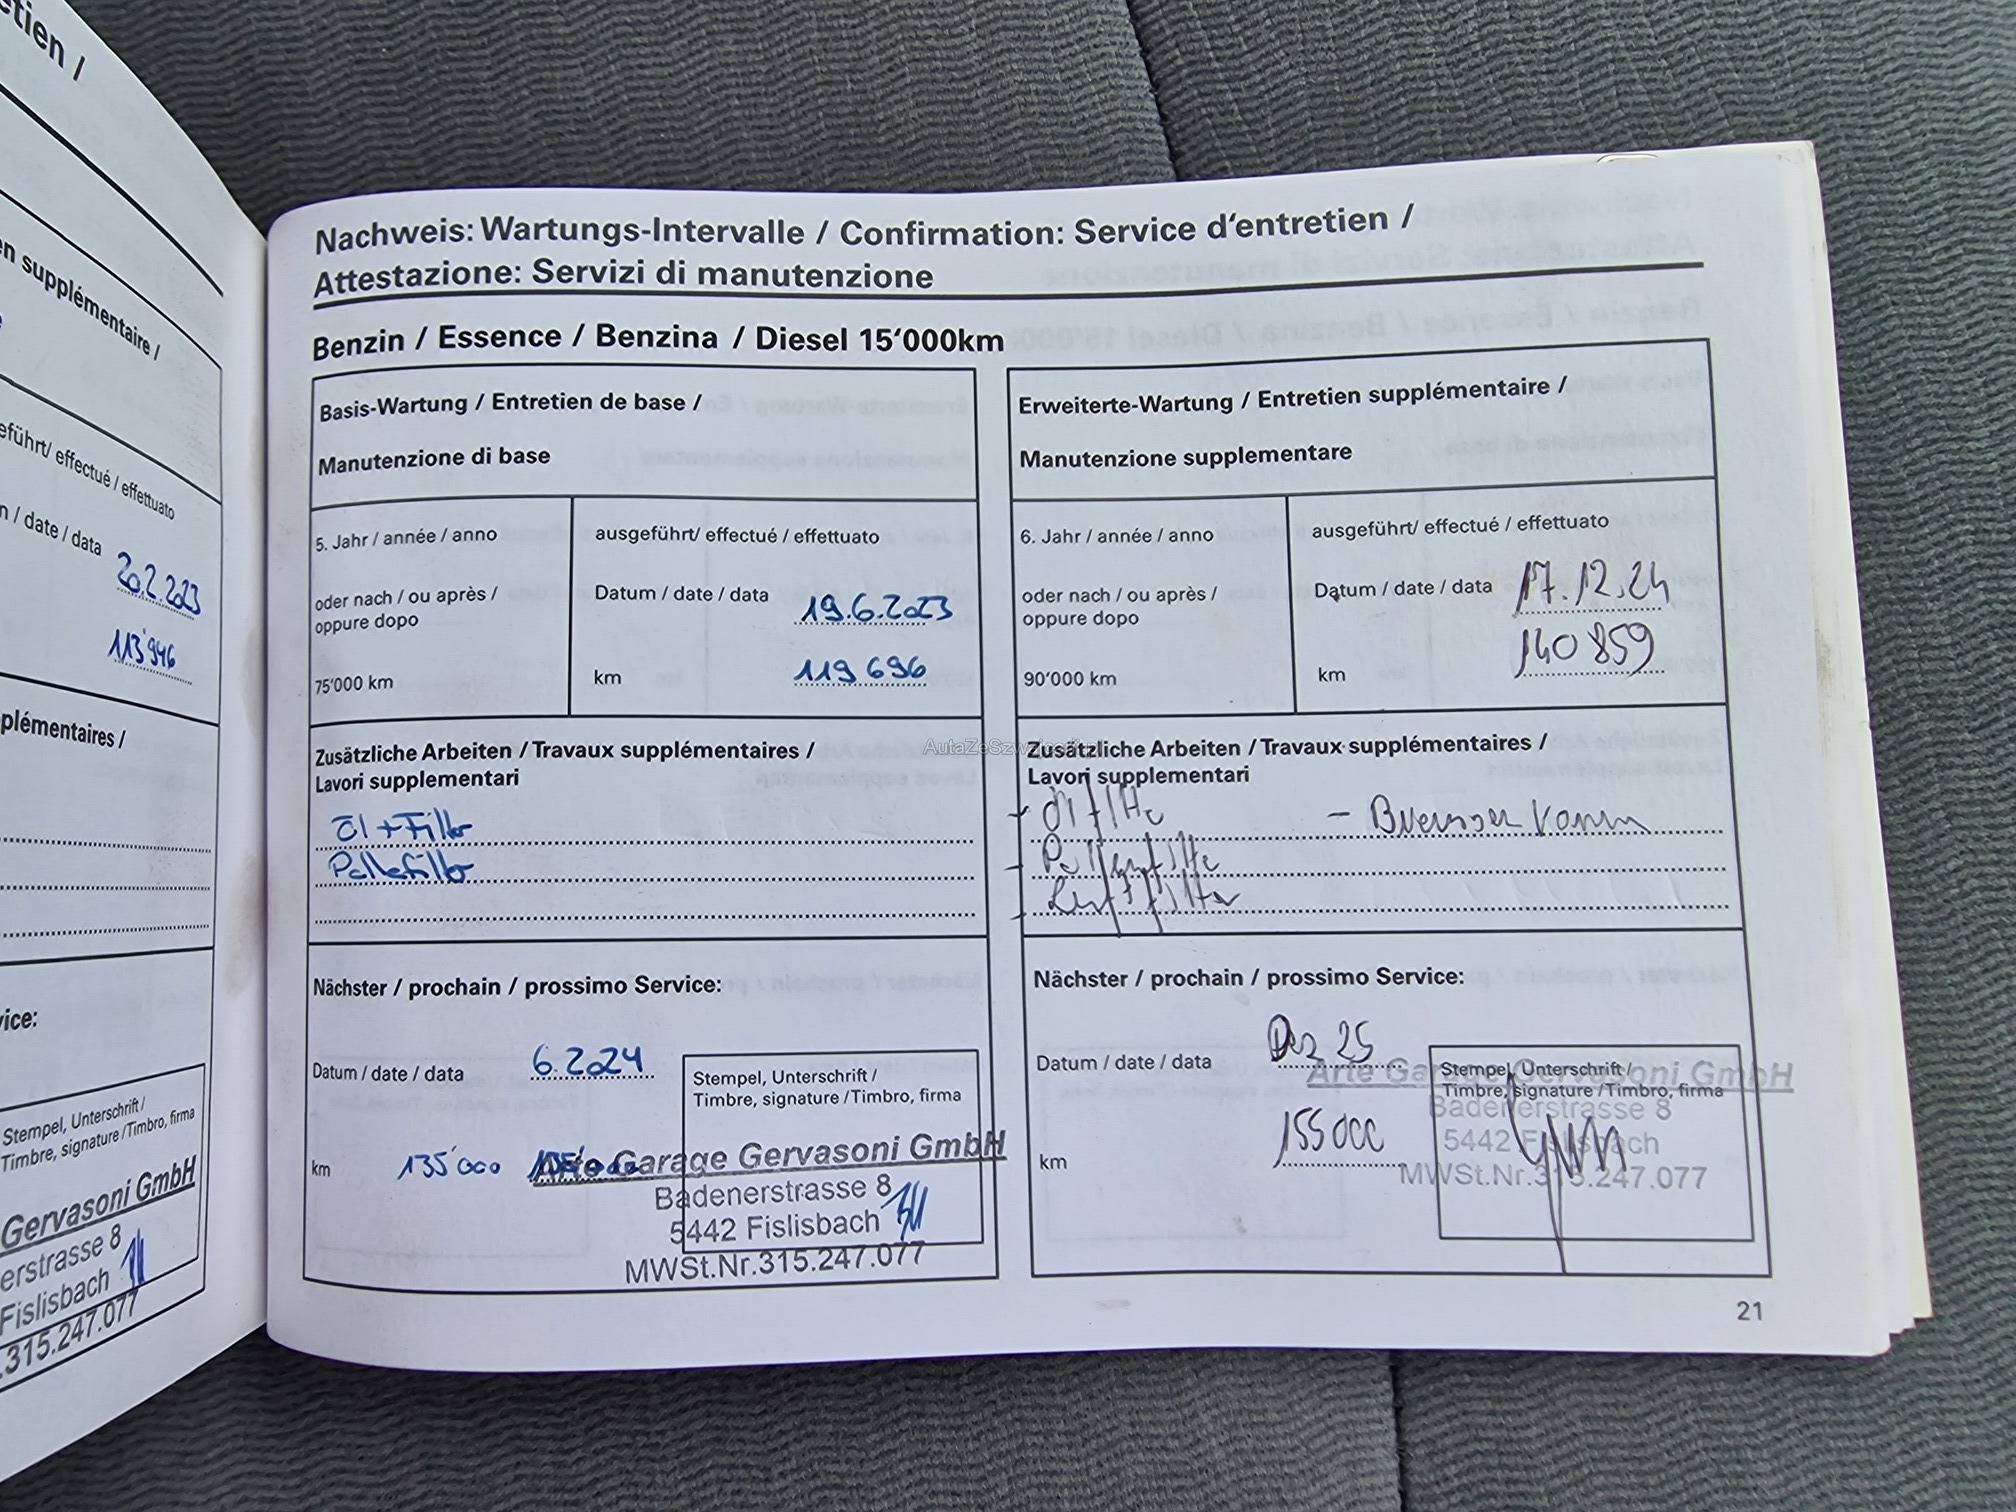 tien /
en supplémentaire /
eführt/ effectué / effettuato
n / date / data
20.2.2023
113'946
plémentaires /
vice:
Stempel, Unterschrift /
Timbre, signature /Timbro, firma
Gervasoni GmbH
erstrasse 8
Fislisbach
.315.247.077
Nachweis: Wartungs-Intervalle / Confirmation: Service d'entretien /
Attestazione: Servizi di manutenzione
Benzin / Essence / Benzina / Diesel 15'000km
Basis-Wartung / Entretien de base /
Manutenzione di base
5. Jahr / année / anno
oder nach / ou après /
oppure dopo
75'000 km
ausgeführt/ effectué / effettuato
Datum / date / data 19.6.2023
km 119 696
Zusätzliche Arbeiten / Travaux supplémentaires /
Lavori supplementari
Öl + Filter
Pollenfilter
Nächster / prochain / prossimo Service:
Datum / date / data 6.2024
km 135'000
Stempel, Unterschrift /
Timbre, signature /Timbro, firma
Arte Garage Gervasoni GmbH
Badenerstrasse 8
5442 Fislisbach
MWSt.Nr.315.247.077
Erweiterte-Wartung / Entretien supplémentaire /
Manutenzione supplementare
6. Jahr / année / anno
oder nach / ou après /
oppure dopo
90'000 km
ausgeführt/ effectué / effettuato
Datum / date / data 17.12.24
km 140 859
Zusätzliche Arbeiten / Travaux supplémentaires /
Lavori supplementari
- Pollenfilter
- Luftfilter
Nächster / prochain / prossimo Service:
Datum / date / data Dez 25
km 155000
Stempel, Unterschrift /
Timbre, signature /Timbro, firma
Arte Garage Gervasoni GmbH
Badenerstrasse 8
5442 Fislisbach
MWSt.Nr.315.247.077
21